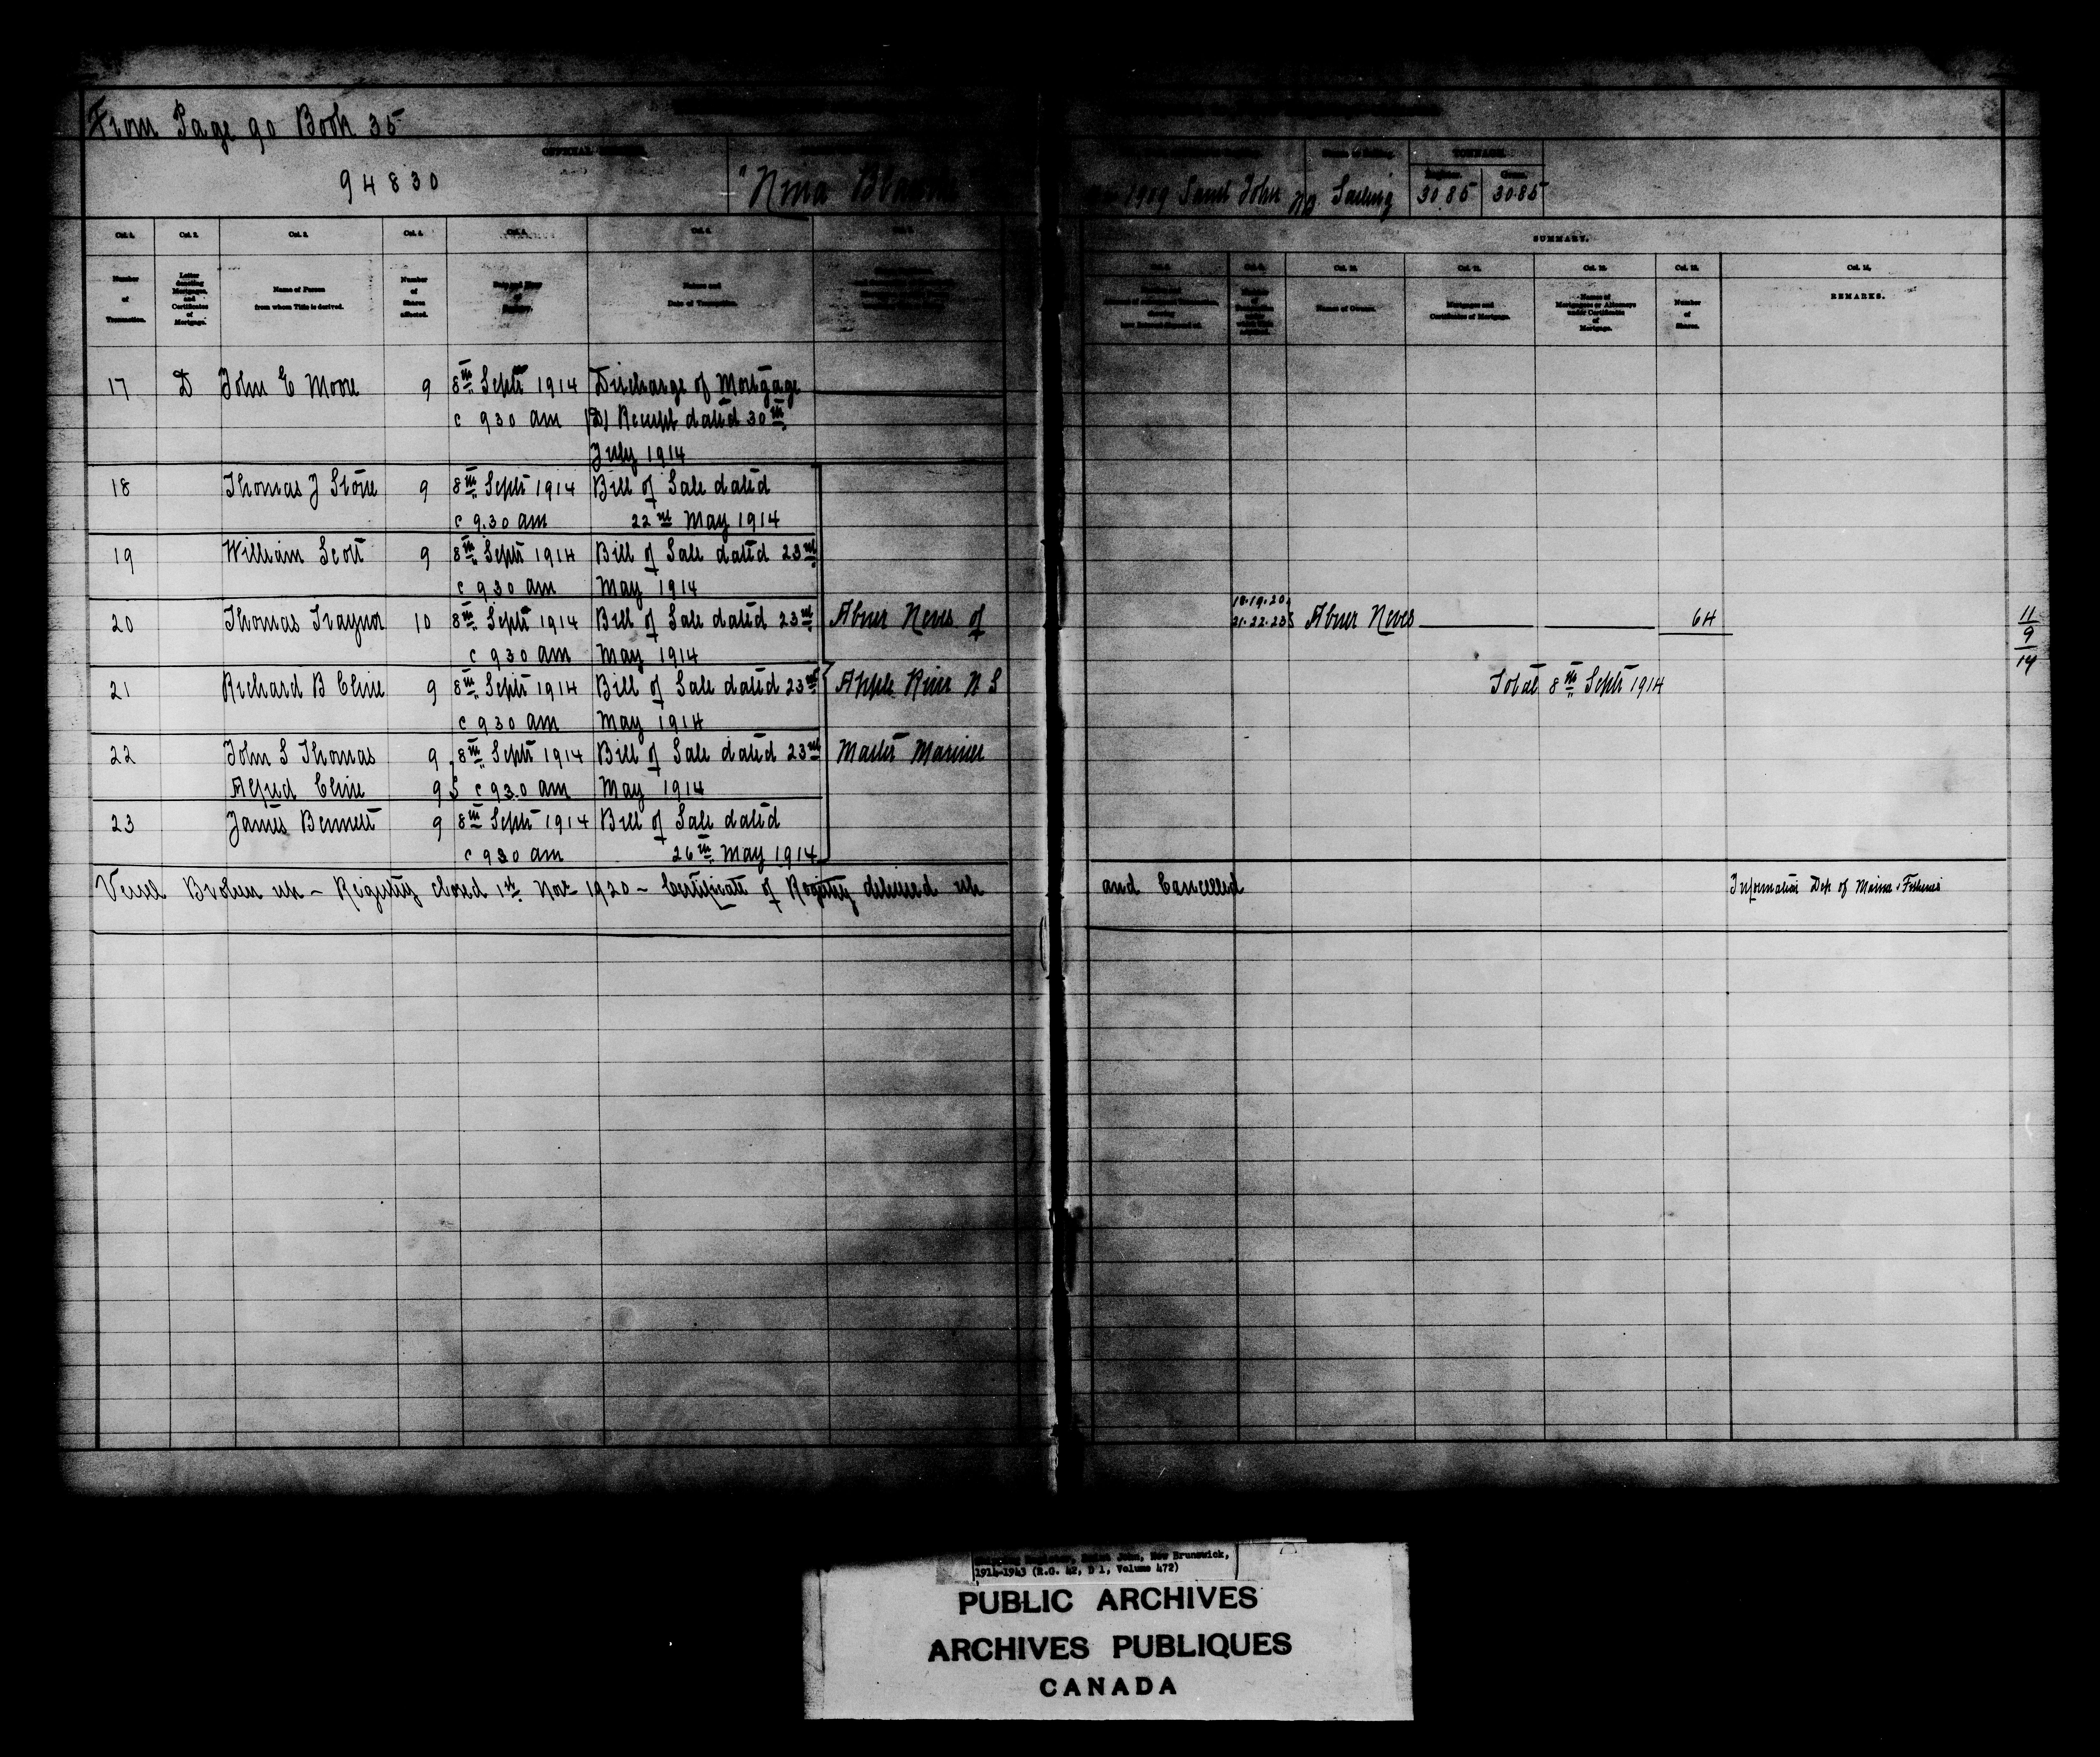 From Page 90 Book 35
OFFICIAL NUMBER
94830
"Nina Blanche"
1909 Saint John NB
Sailing
TONNAGE.
30.85
30.85
SUMMARY.
Col. 1.
Col. 2.
Col. 3.
Col. 4.
Col. 5.
Col. 6.
Col. 9.
Col. 10.
Col. 11.
Col. 12.
Col. 13.
Col. 14.
Number of Transaction.
Letter denoting Mortgages, and Certificates of Mortgage.
Name of Person from whom Title is derived.
Number of Shares affected.
Nature and Date of Transaction.
Names of Owners.
Mortgages and Certificates of Mortgage.
Names of Mortgagees or Attorneys under Certificates of Mortgage.
Number of Shares.
REMARKS.
17 D John E Moore 9 8th Septr 1914 Discharge of Mortgage
c 930 am (D) Receipt dated 30th
July 1914
18 Thomas J Stone 9 8th Septr 1914 Bill of Sale dated
c 9.30 am 22nd May 1914
19 William Scott 9 8th Septr 1914 Bill of Sale dated 23rd
c 930 am May 1914
20 Thomas Traynor 10 8th Septr 1914 Bill of Sale dated 23rd Abner Neves of
18.19.20.
21.22.23 Abner Neves 64
c 930 am May 1914
11/9/14
21 Richard B Cline 9 8th Septr 1914 Bill of Sale dated 23rd Apple River N S
Total 8th Septr 1914
c 930 am May 1914
22 John S Thomas 9 8th Septr 1914 Bill of Sale dated 23rd Master Mariner
Alfred Cline 9 c 930 am May 1914
23 James Bennett 9 8th Septr 1914 Bill of Sale dated
c 930 am 26th May 1914
Vessel Broken up - Registry closed 1st Nov 1920 - Certificate of Registry delivered up and Cancelled
Information Dep of Marine & Fisheries
Shipping Register, Saint John, New Brunswick,
1914-1943 (R.G. 42, D 1, Volume 472)
PUBLIC ARCHIVES
ARCHIVES PUBLIQUES
CANADA